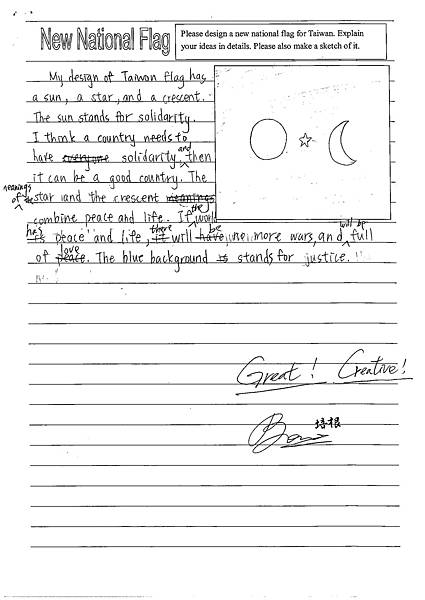 New National Flag
Please design a new national flag for Taiwan. Explain
your ideas in details. Please also make a sketch of it.
My design of Taiwan flag has
a sun, a star, and a crescent.
The sun stands for solidarity.
I think a country needs to
have everyone solidarity, and then
it can be a good country. The
meanings of the star and the crescent meanings
combine peace and life. If the world
has is peace and life, there it will have be no more wars, and will be full
of love peace. The blue background is stands for justice.
Great! Creative!
培根